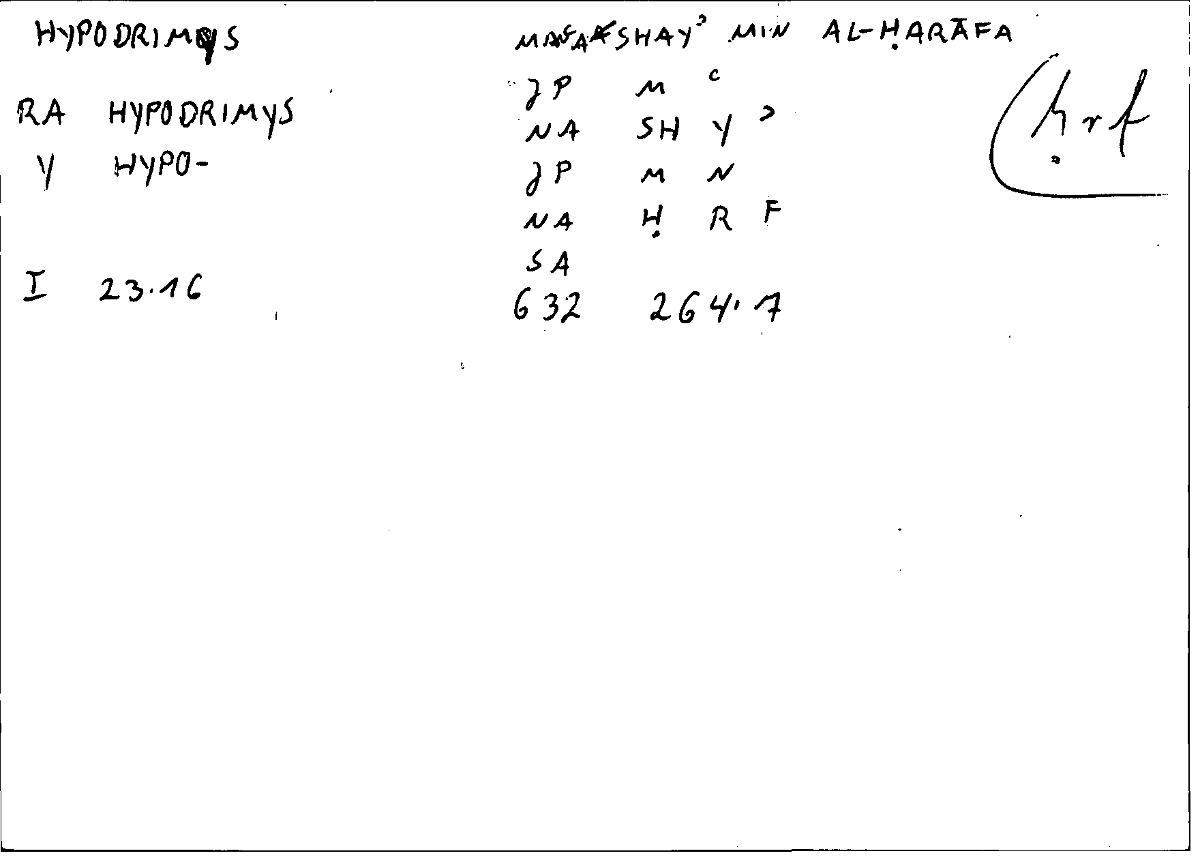 HYPODRIMYS MAʿA SHAYʾ MIN AL-ḤARĀFA
ḥrf
RA HYPODRIMYS
Y HYPO-
JP M ʿ
NA SH Y ʾ
JP M N
NA Ḥ R F
SA
I 23.16
632 264.7